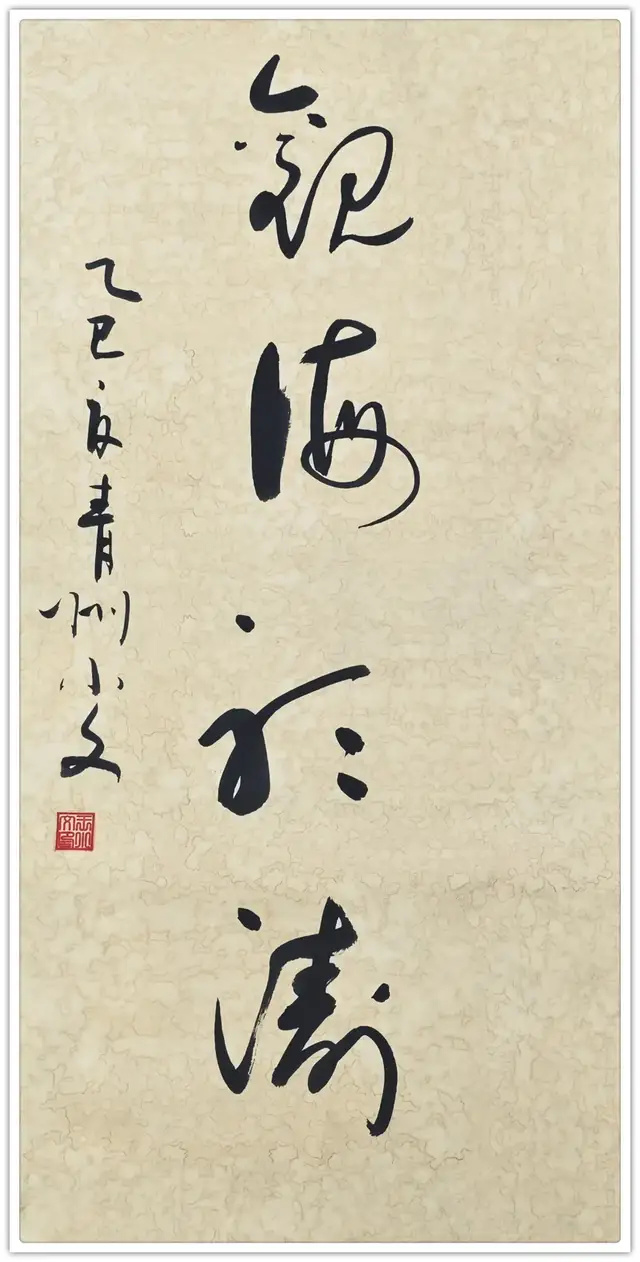 觀海聽濤
乙巳夏青州小文